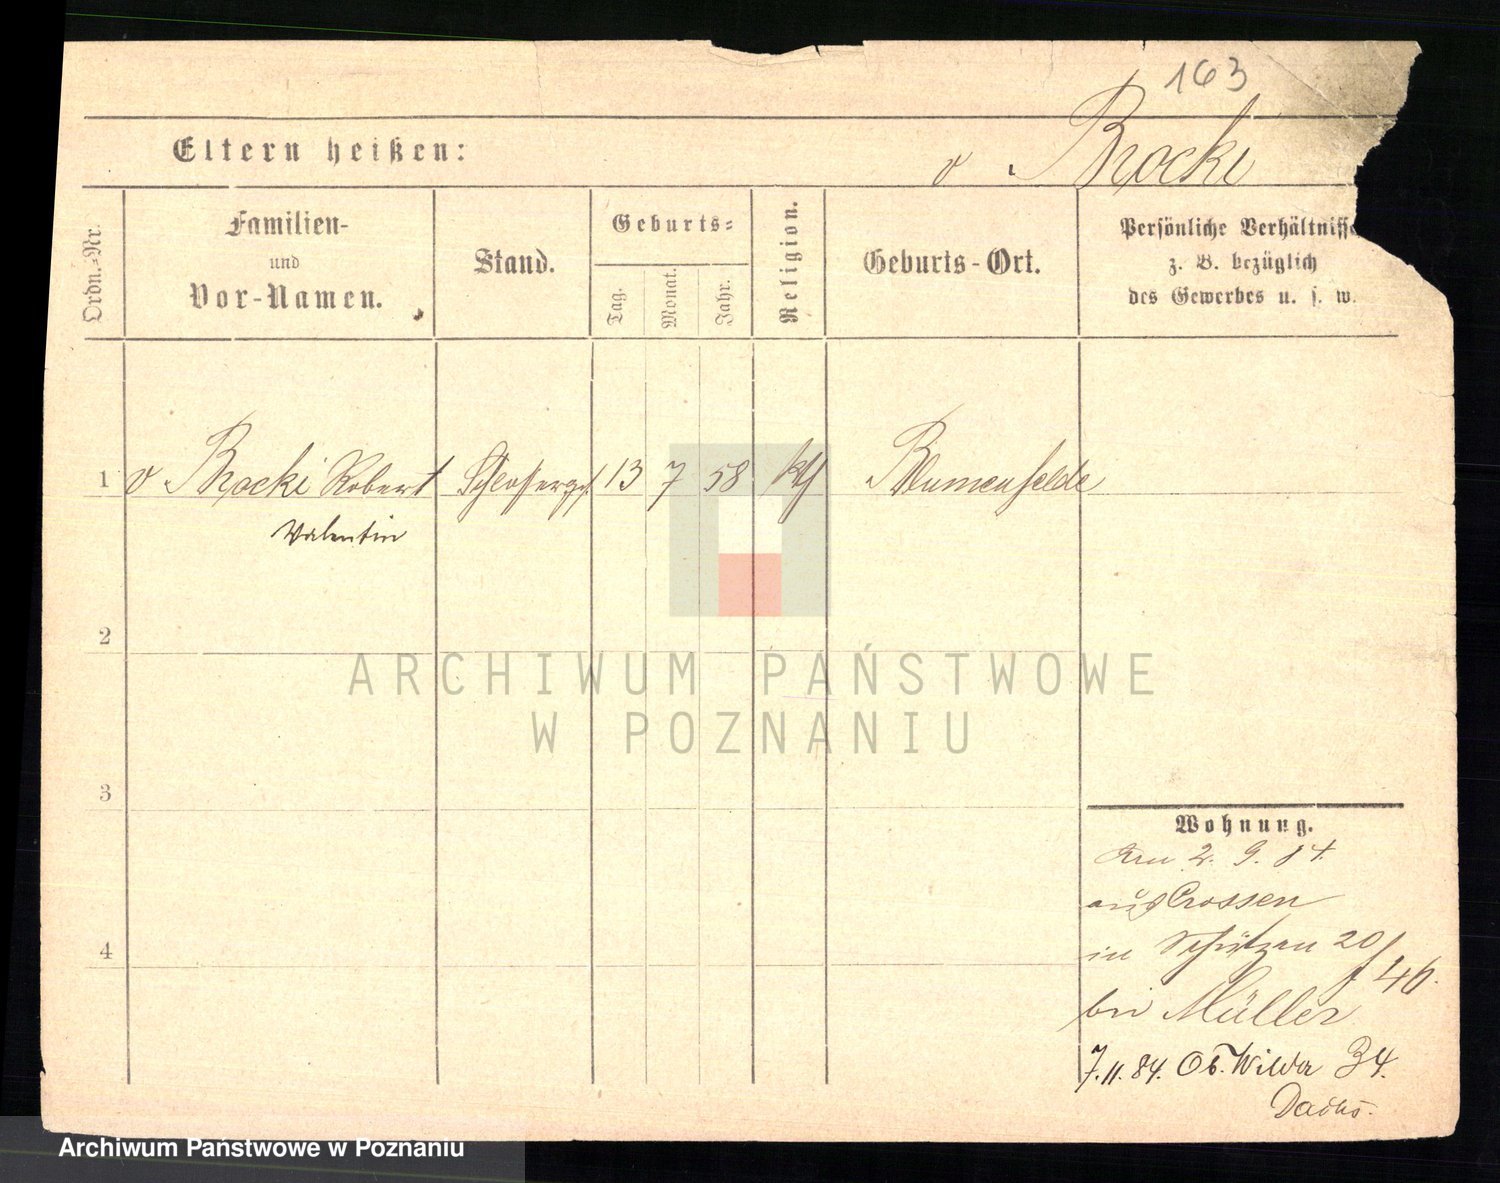 163
Eltern heißen:
v. Brocki
Ordn.-Nr.
Familien-
und
Vor-Namen.
Stand.
Geburts-
Tag.
Monat.
Jahr.
Religion.
Geburts-Ort.
Persönliche Verhältnisse
z. B. bezüglich
des Gewerbes u. s. w.
1 v. Brocki Robert Schlosserges. 13 7 58 kth Blumenfelde
Valentin
2
3
4
Wohnung.
2. 9. 84
aus Crossen
in Schützen 20/46.
bei Müller
7.11.84. Ob. Wilda 34.
Dachs.
ARCHIWUM PAŃSTWOWE
W POZNANIU
Archiwum Państwowe w Poznaniu